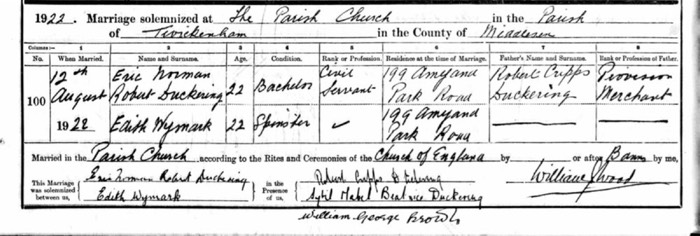 1922. Marriage solemnized at The Parish Church in the Parish
of Twickenham in the County of Middlesex
Columns:— 1 2 3 4 5 6 7 8
No. When Married. Name and Surname. Age. Condition. Rank or Profession. Residence at the time of Marriage. Father's Name and Surname. Rank or Profession of Father.
100 12th August 1922 Eric Norman Robert Duckering 22 Bachelor Civil Servant 199 Amyand Park Road Robert Cripps Duckering Provision Merchant
Edith Wymark 22 Spinster 199 Amyand Park Road
Married in the Parish Church, according to the Rites and Ceremonies of the Church of England by or after Banns by me,
This Marriage was solemnized between us, Eric Norman Robert Duckering
Edith Wymark
in the Presence of us, Robert Cripps Duckering
Sybil Mabel Beatrice Duckering
William George Brown
William Wood